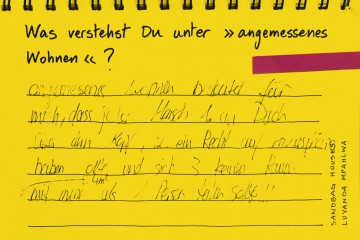 Was verstehst Du unter »angemessenes
Wohnen«?
angemessenes Wohnen bedeutet für
mich, dass jeder Mensch ein Dach
über dem Kopf, ein Recht auf
haben und sich 3 keinen Raum
mit mehr als 1 Person teilen sollte!!
SANDBAG HOUSES
LUYANDA MPAHLWA